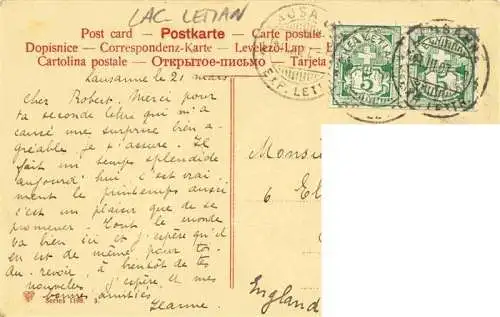 LAC-LEMAN
Post card – Postkarte – Carte postale
Dopisnice – Correspondenz-Karte – Levelező-Lap
Cartolina postale – Открытое-письмо – Tarjeta
Lausanne le 21 mars
Cher Robert. Merci pour
ta seconde lettre qui m'a
causé une surprise bien a-
gréable je t'assure. Il
fait un temps splendide
aujourd'hui c'est vrai-
ment le printemps aussi
c'est un plaisir que de se
promener. Tout le monde
va bien ici et j'espère qu'il
en est de même pour toi.
Au-revoir, à bientôt de tes
nouvelles j'espère, et mes
bonnes amitiés
Jeanne.
Monsie
6 El
England
Series
HELVETIA
5
LAUSANNE
EXP. LETTR.